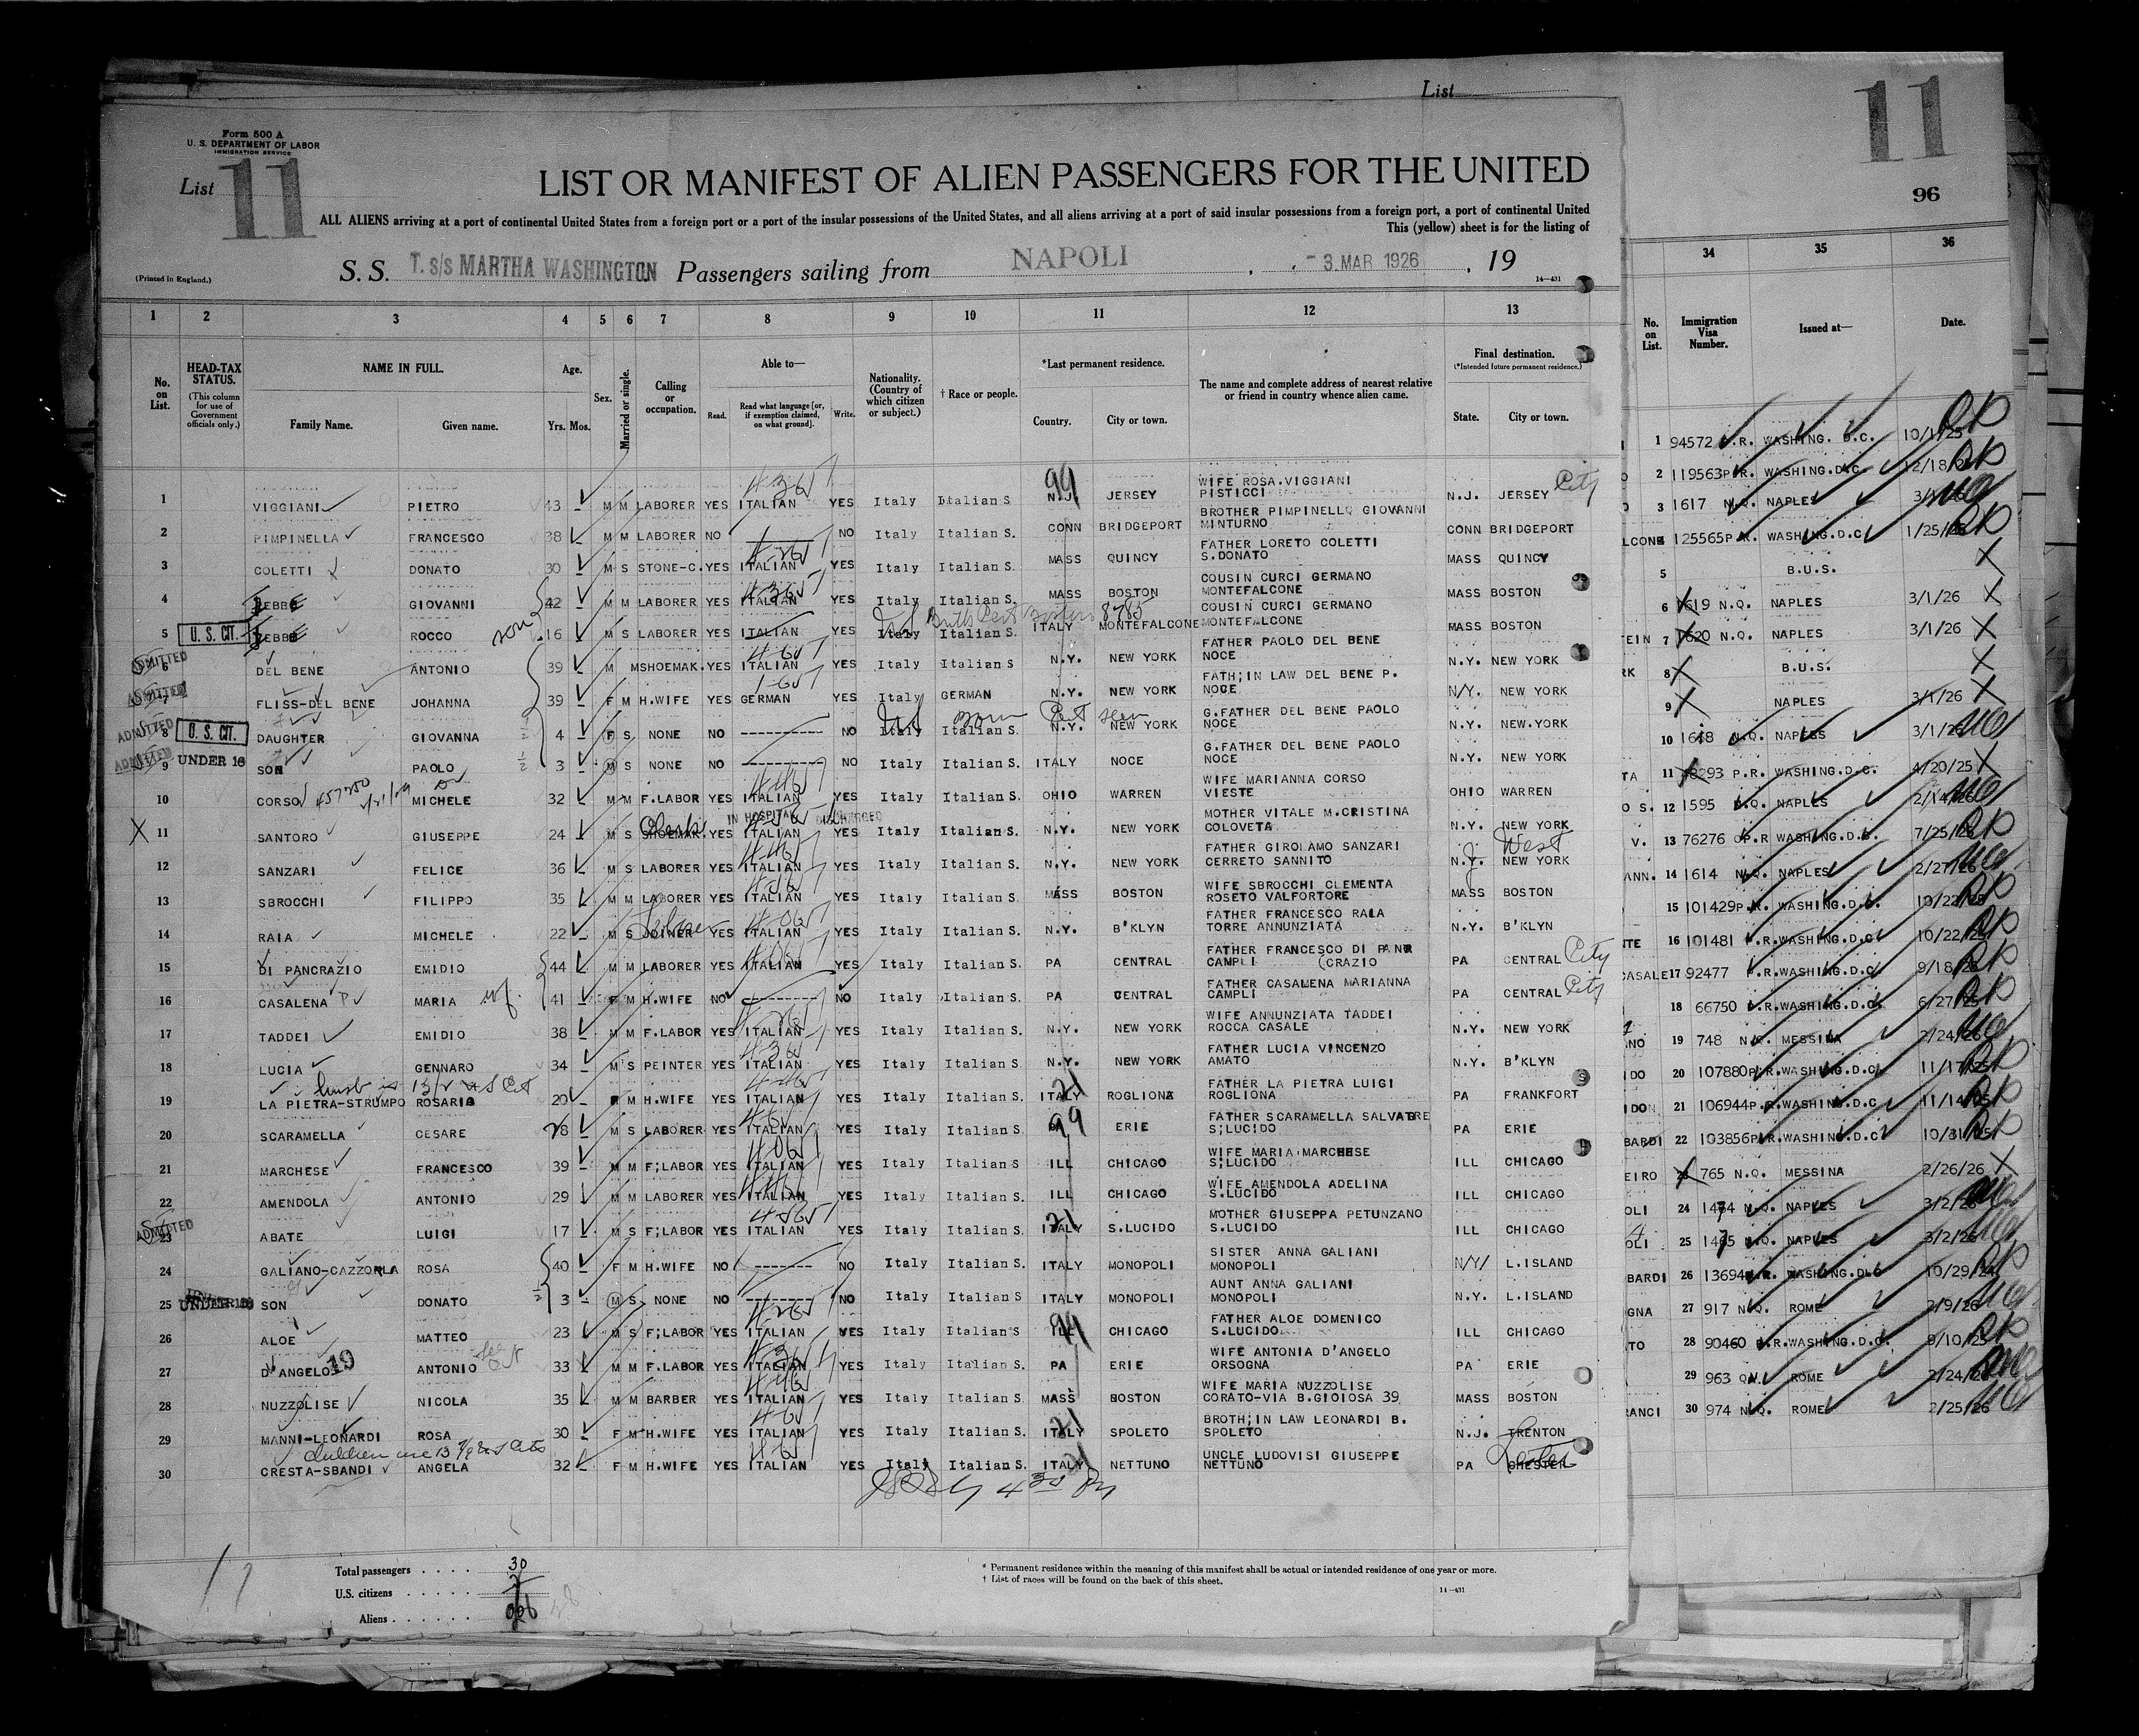 List
11
Form 500 A
U. S. DEPARTMENT OF LABOR
IMMIGRATION SERVICE
List 11
LIST OR MANIFEST OF ALIEN PASSENGERS FOR THE UNITED
96
ALL ALIENS arriving at a port of continental United States from a foreign port or a port of the insular possessions of the United States, and all aliens arriving at a port of said insular possessions from a foreign port, a port of continental United
This (yellow) sheet is for the listing of
(Printed in England.) S. S. T. s/s MARTHA WASHINGTON Passengers sailing from NAPOLI , 3 MAR 1926 , 19
14—431
1 2 3 4 5 6 7 8 9 10 11 12 13 34 35 36
No. on List. HEAD-TAX STATUS. (This column for use of Government officials only.) NAME IN FULL. Family Name. Given name. Age. Yrs. Mos. Sex. Married or single. Calling or occupation. Able to— Read. Read what language [or, if exemption claimed, on what ground]. Write. Nationality. (Country of which citizen or subject.) † Race or people. *Last permanent residence. Country. City or town. The name and complete address of nearest relative or friend in country whence alien came. Final destination. (*Intended future permanent residence.) State. City or town. No. on List. Immigration Visa Number. Issued at— Date.
1 VIGGIANI PIETRO 43 M M LABORER YES ITALIAN YES Italy Italian S N.J. JERSEY WIFE ROSA VIGGIANI PISTICCI N.J. JERSEY City
2 PIMPINELLA FRANCESCO 38 M M LABORER NO NO Italy Italian S. CONN BRIDGEPORT BROTHER PIMPINELLO GIOVANNI MINTURNO CONN BRIDGEPORT
3 COLETTI DONATO 30 M S STONE-C. YES ITALIAN YES Italy Italian S. MASS QUINCY FATHER LORETO COLETTI S.DONATO MASS QUINCY
4 GIOVANNI 42 M M LABORER YES ITALIAN YES Italy Italian S. MASS BOSTON COUSIN CURCI GERMANO MONTEFALCONE MASS BOSTON
5 U. S. CIT. ROCCO son 16 M S LABORER YES ITALIAN YES Italy Italian S. ITALY MONTEFALCONE COUSIN CURCI GERMANO MONTEFALCONE MASS BOSTON
6 ADMITTED DEL BENE ANTONIO 39 M M SHOEMAK. YES ITALIAN YES Italy Italian S N.Y. NEW YORK FATHER PAOLO DEL BENE NOCE N.Y. NEW YORK
7 ADMITTED FLISS-DEL BENE JOHANNA 39 F M H.WIFE YES GERMAN YES Italy GERMAN N.Y. NEW YORK FATH;IN LAW DEL BENE P. NOCE N/Y. NEW YORK
8 ADMITTED U. S. CIT. DAUGHTER GIOVANNA 4 F S NONE NO NO Italy Italian S. N.Y. NEW YORK G.FATHER DEL BENE PAOLO NOCE N.Y. NEW.YORK
9 ADMITTED UNDER 16 SON PAOLO 3 M S NONE NO NO Italy Italian S. ITALY NOCE G.FATHER DEL BENE PAOLO NOCE N.Y. NEW YORK
10 CORSO MICHELE 32 M M F.LABOR YES ITALIAN YES Italy Italian S. OHIO WARREN WIFE MARIANNA CORSO VIESTE OHIO WARREN
IN HOSPITAL DISCHARGED
11 SANTORO GIUSEPPE 24 M S SHOEMAK. YES ITALIAN YES Italy Italian S. N.Y. NEW YORK MOTHER VITALE M.CRISTINA COLOVETA N.Y. NEW YORK
12 SANZARI FELICE 36 M S LABORER YES ITALIAN YES Italy Italian S. N.Y. NEW YORK FATHER GIROLAMO SANZARI CERRETO SANNITO N.Y. J. West NEW YORK
13 SBROCCHI FILIPPO 35 M M LABORER YES ITALIAN YES Italy Italian S. MASS BOSTON WIFE SBROCCHI CLEMENTA ROSETO VALFORTORE MASS BOSTON
14 RAIA MICHELE 22 M S JOINER YES ITALIAN YES Italy Italian S. N.Y. B'KLYN FATHER FRANCESCO RAIA TORRE ANNUNZIATA N.Y. B'KLYN
15 DI PANCRAZIO EMIDIO 44 M M LABORER YES ITALIAN YES Italy Italian S. PA CENTRAL FATHER FRANCESCO DI PAN CAMPLI (CRAZIO PA CENTRAL City
16 CASALENA MARIA wf. 41 F M H.WIFE NO NO Italy Italian S. PA CENTRAL FATHER CASALENA MARIANNA CAMPLI PA CENTRAL City
17 TADDEI EMIDIO 38 M M F.LABOR YES ITALIAN YES Italy Italian S. N.Y. NEW YORK WIFE ANNUNZIATA TADDEI ROCCA CASALE N.Y. NEW YORK
18 LUCIA GENNARO 34 M S PEINTER YES ITALIAN YES Italy Italian S. N.Y. NEW YORK FATHER LUCIA VINCENZO AMATO N.Y. B'KLYN
19 LA PIETRA-STRUMPO ROSARIA 20 M H.WIFE YES ITALIAN YES Italy Italian S. ITALY ROGLIONA FATHER LA PIETRA LUIGI ROGLIONA PA FRANKFORT
20 SCARAMELLA CESARE 28 M S LABORER YES ITALIAN YES Italy Italian S ERIE FATHER SCARAMELLA SALVATORE S;LUCIDO PA ERIE
21 MARCHESE FRANCESCO 39 M M F;LABOR YES ITALIAN YES Italy Italian S ILL CHICAGO WIFE MARIA MARCHESE S;LUCIDO ILL CHICAGO
22 AMENDOLA ANTONIO 29 M M LABORER YES ITALIAN YES Italy Italian S. ILL CHICAGO WIFE AMENDOLA ADELINA S.LUCIDO ILL CHICAGO
23 ADMITTED ABATE LUIGI 17 M S F;LABOR YES ITALIAN YES Italy Italian S. ITALY S.LUCIDO MOTHER GIUSEPPA PETUNZANO S.LUCIDO ILL CHICAGO
24 GALIANO-CAZZORLA ROSA 40 F M H.WIFE NO NO Italy Italian S. ITALY MONOPOLI SISTER ANNA GALIANI MONOPOLI N/Y/ L.ISLAND
25 UNDER 16 SON DONATO 3 M S NONE NO NO Italy Italian S. ITALY MONOPOLI AUNT ANNA GALIANI MONOPOLI N.Y. L.ISLAND
26 ALOE MATTEO 23 M S F;LABOR YES ITALIAN YES Italy Italian S ILL CHICAGO FATHER ALOE DOMENICO S.LUCIDO ILL CHICAGO
27 D'ANGELO 19 ANTONIO 33 M M F.LABOR YES ITALIAN YES Italy Italian S. PA ERIE WIFE ANTONIA D'ANGELO ORSOGNA PA ERIE
28 NUZZOLISE NICOLA 35 M M BARBER YES ITALIAN YES Italy Italian S. MASS BOSTON WIFE MARIA NUZZOLISE CORATO-VIA B.GIOIOSA 39 MASS BOSTON
29 MANNI-LEONARDI ROSA 30 F M H.WIFE YES ITALIAN YES Italy Italian S. ITALY SPOLETO BROTH;IN LAW LEONARDI B. SPOLETO N.J. TRENTON
30 CRESTA-SBANDI ANGELA 32 F M H.WIFE YES ITALIAN YES Italy Italian S. ITALY NETTUNO UNCLE LUDOVISI GIUSEPPE NETTUNO PA CHESTER
1 94572 P.R. WASHING. D.C. 10/1/25
2 119563 P.R. WASHING.D.C. 12/18/25
3 1617 N.Q. NAPLES
4 125565 P.R. WASHING.D.C. 1/25/26
5 B.U.S.
6 1619 N.Q. NAPLES 3/1/26
7 1620 N.Q. NAPLES 3/1/26
8 B.U.S.
9 NAPLES 3/1/26
10 1618 N.Q. NAPLES 3/1/26
11 48293 P.R. WASHING.D.C. 4/20/25
12 1595 N.Q. NAPLES 2/14/26
13 76276 P.R WASHING.D.C. 7/25/25
14 1614 N.Q. NAPLES 2/27/26
15 101429 P.R. WASHING.D.C. 10/22/25
16 101481 P.R. WASHING.D.C. 10/22/25
17 92477 P.R. WASHING.D.C. 9/18/25
18 66750 P.R. WASHING.D.C. 6/27/25
19 748 N.Q. MESSINA 2/24/26
20 107880 P.R. WASHING.D.C. 11/17/25
21 106944 P.R. WASHING.D.C. 11/14/25
22 103856 P.R. WASHING.D.C. 10/31/25
765 N.Q. MESSINA 2/26/26
24 N.Q. NAPLES 3/2/26
25 N.Q. NAPLES 3/2/26
26 13694 WASHING.D.C. 10/29/2
27 917 N.Q. ROME 2/9/26
28 90460 P.R. WASHING.D.C. 9/10/25
29 963 ROME 2/24/26
30 974 N.Q. ROME 2/25/26
Total passengers 30
U.S. citizens 2
Aliens
* Permanent residence within the meaning of this manifest shall be actual or intended residence of one year or more.
† List of races will be found on the back of this sheet.
14—431